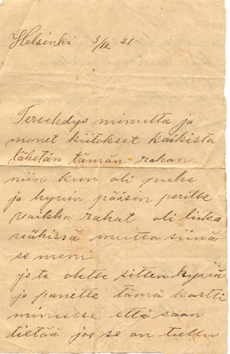 Helsinki 3/12 21
Tervehdys minulta ja
monet kiitokset kaikista
lähetän tämän rahan
niin kun oli puhe
ja hyvin pääsin perille
vaikka rahat oli liika
vähissä mutta siinä
se meni
ja te olette sitten hyviä
ja panette tämä kortti
minulle että saan
tietää jos se on tullu